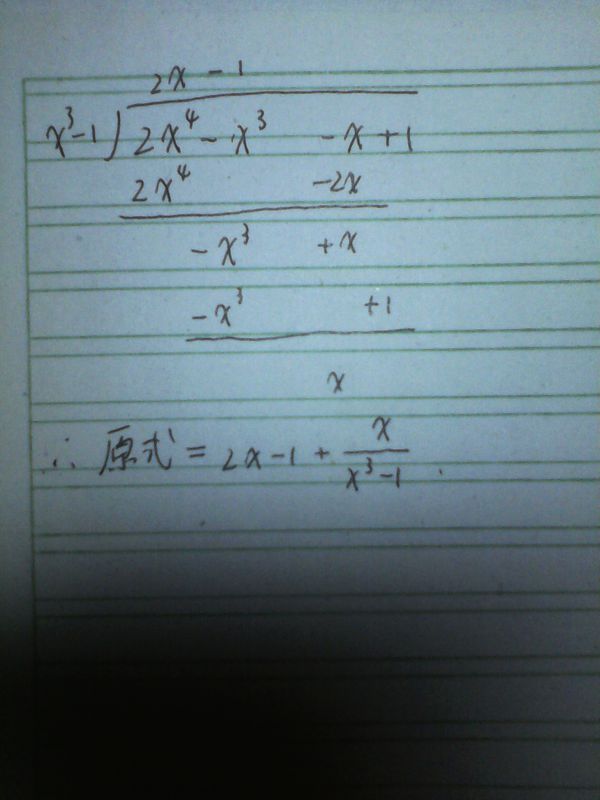 2x - 1
x³-1 ) 2x⁴ - x³ - x + 1
2x⁴ -2x
- x³ + x
- x³ + 1
x
∴ 原式 = 2x-1 + x/(x³-1) .